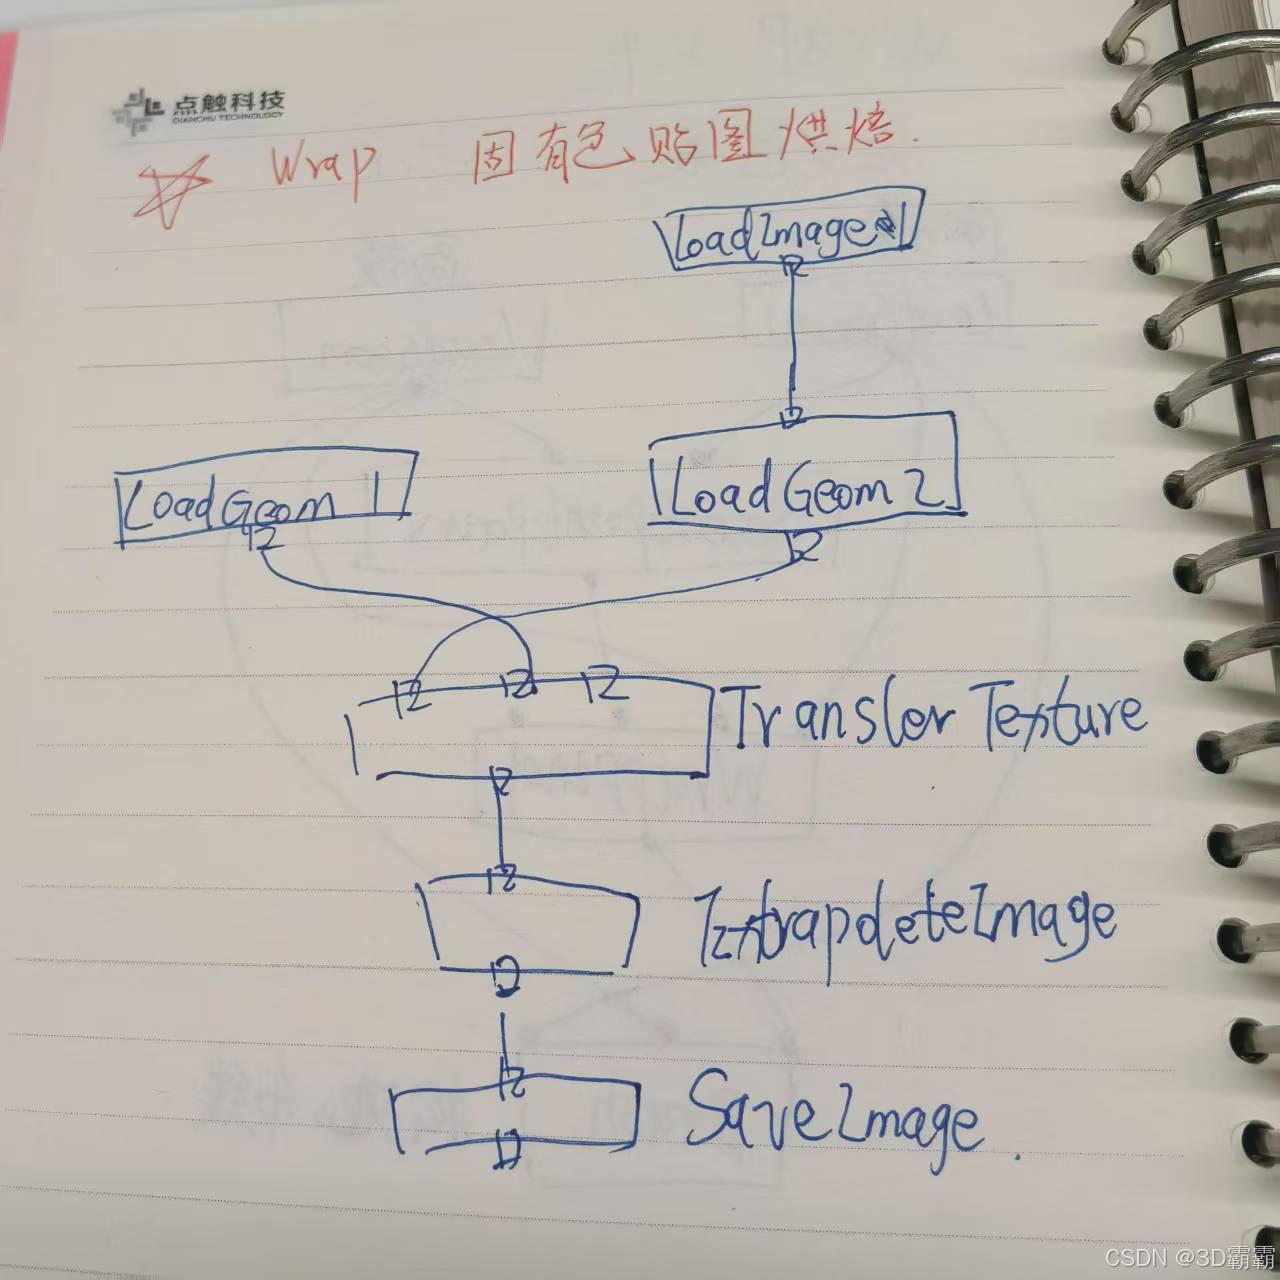 点触科技
DIANCHU TECHNOLOGY
Wrap 固有色贴图烘焙.
LoadImage 1
LoadGeom 1
LoadGeom 2
Transler Texture
ExtrapdeteImage
SaveImage.
CSDN @3D霸霸